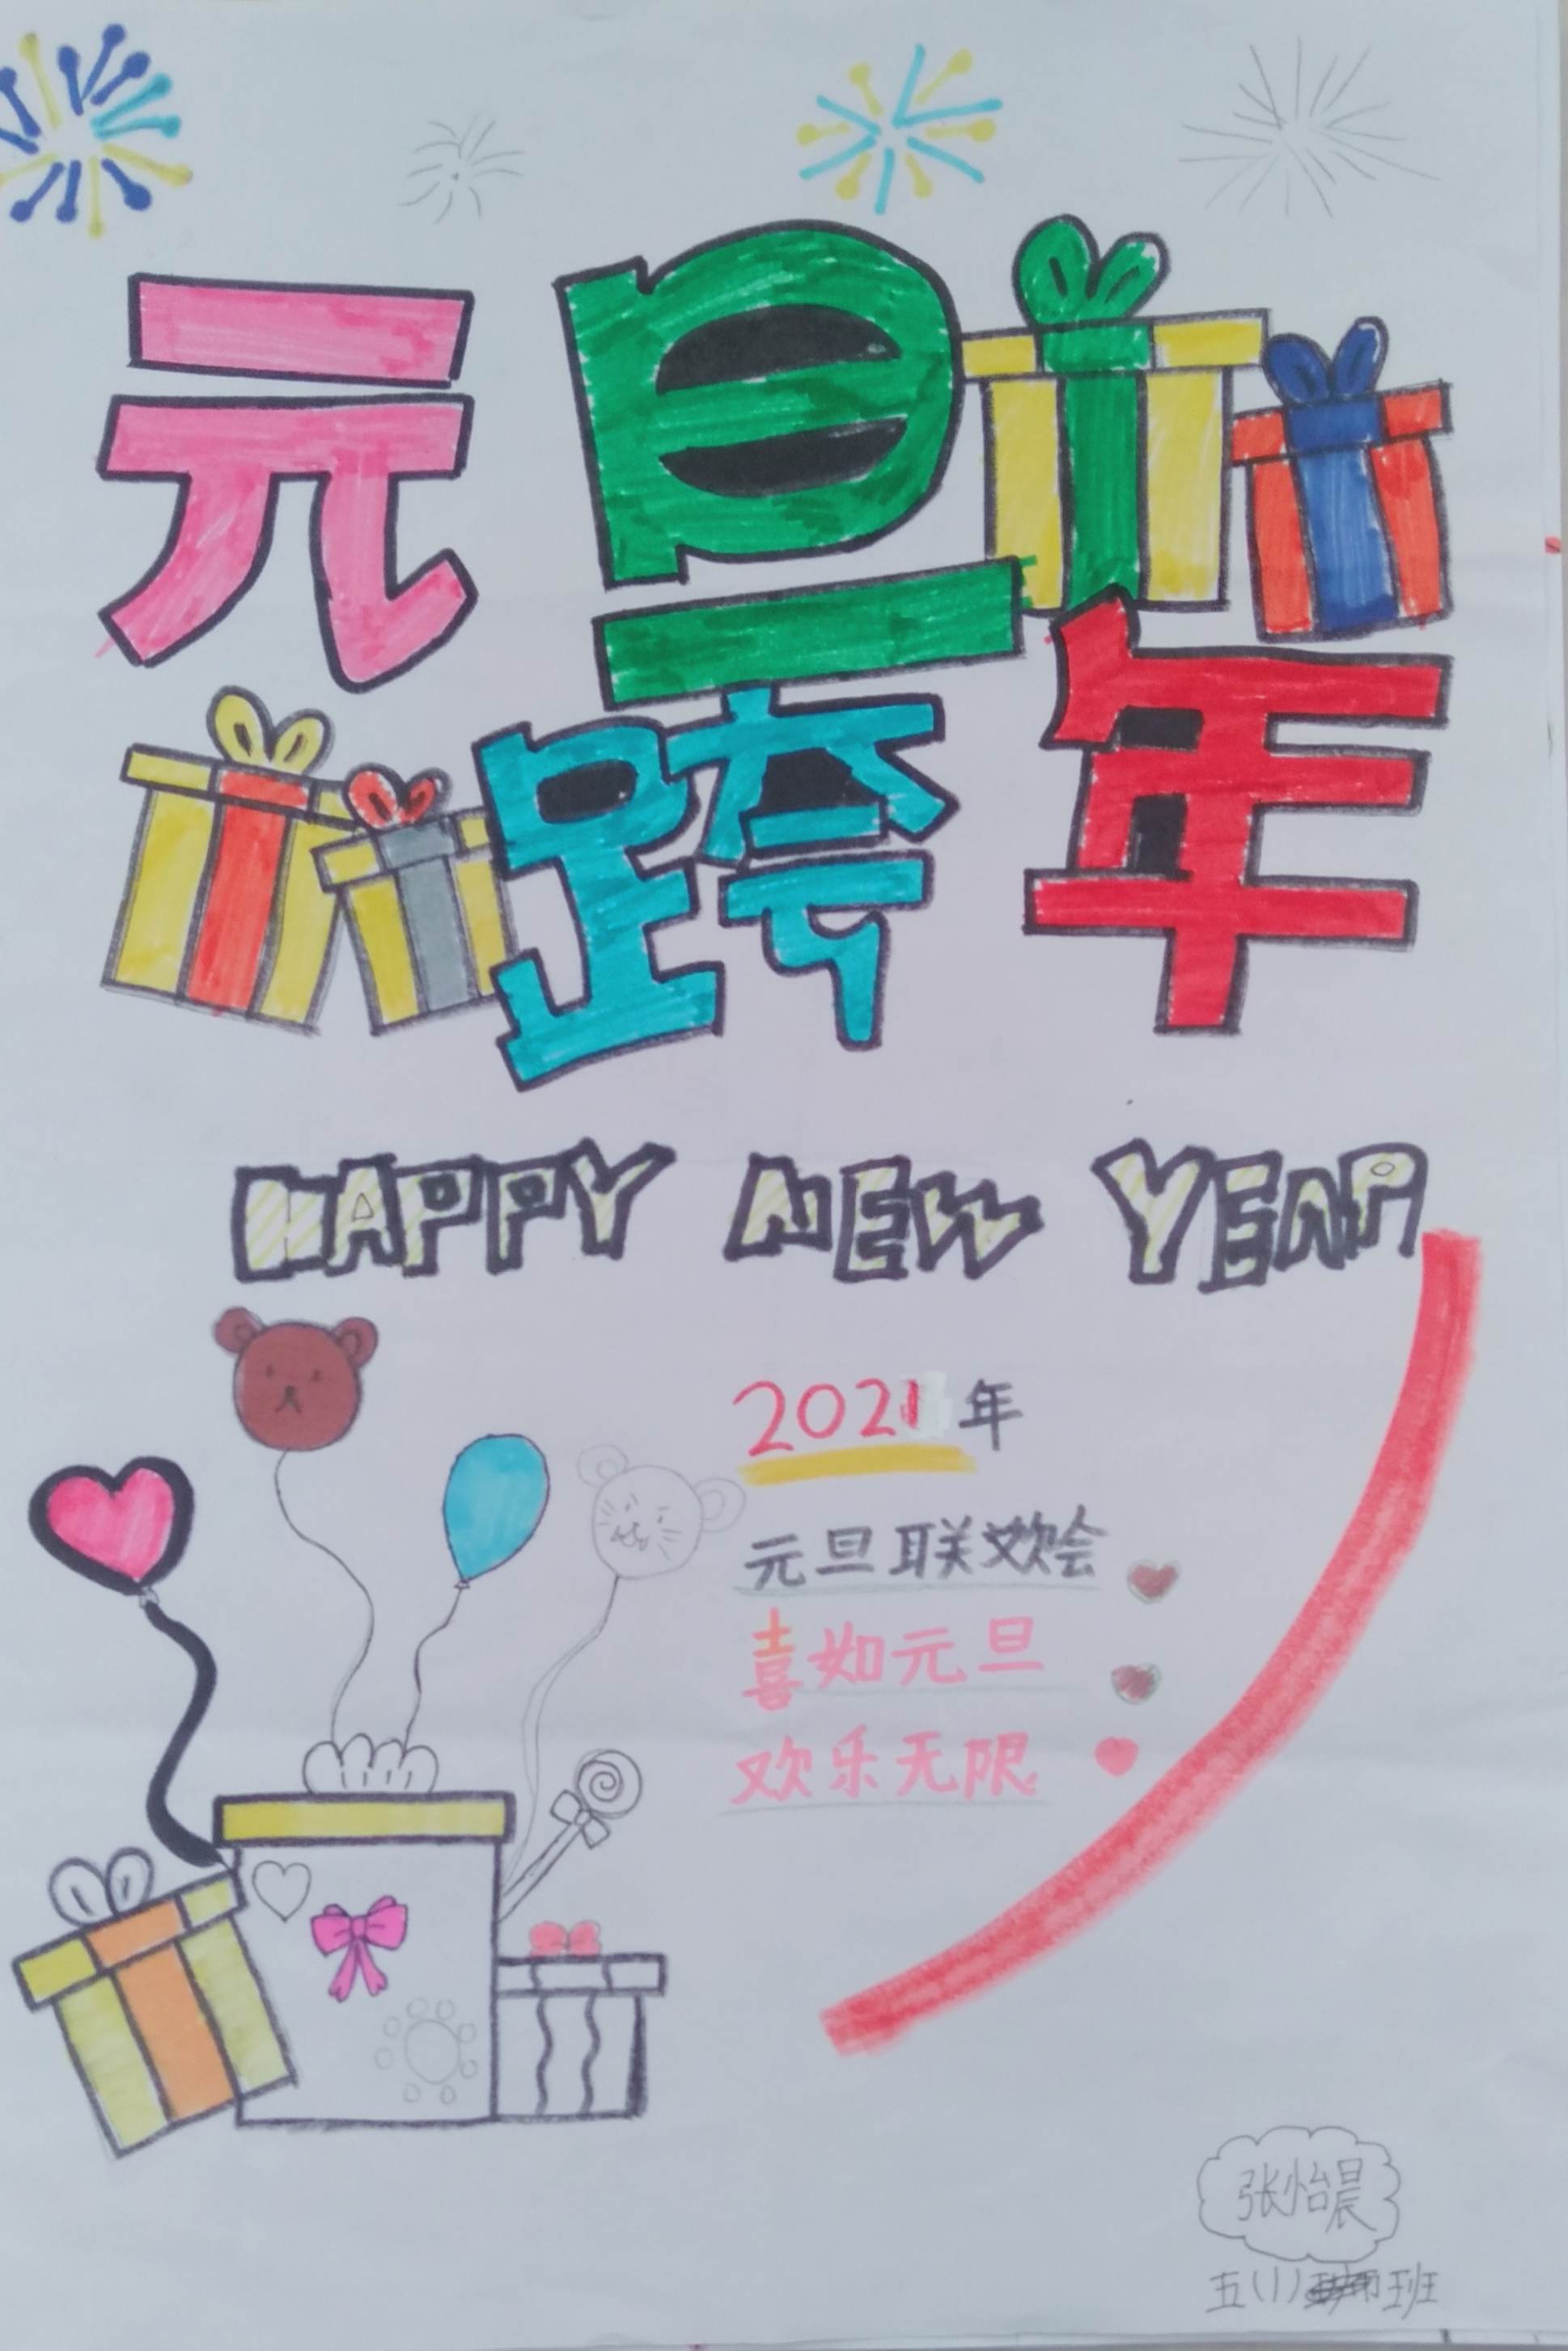 元旦
跨年
HAPPY NEW YEAR
2021年
元旦联欢会
喜如元旦
欢乐无限
张怡晨
五(1)班